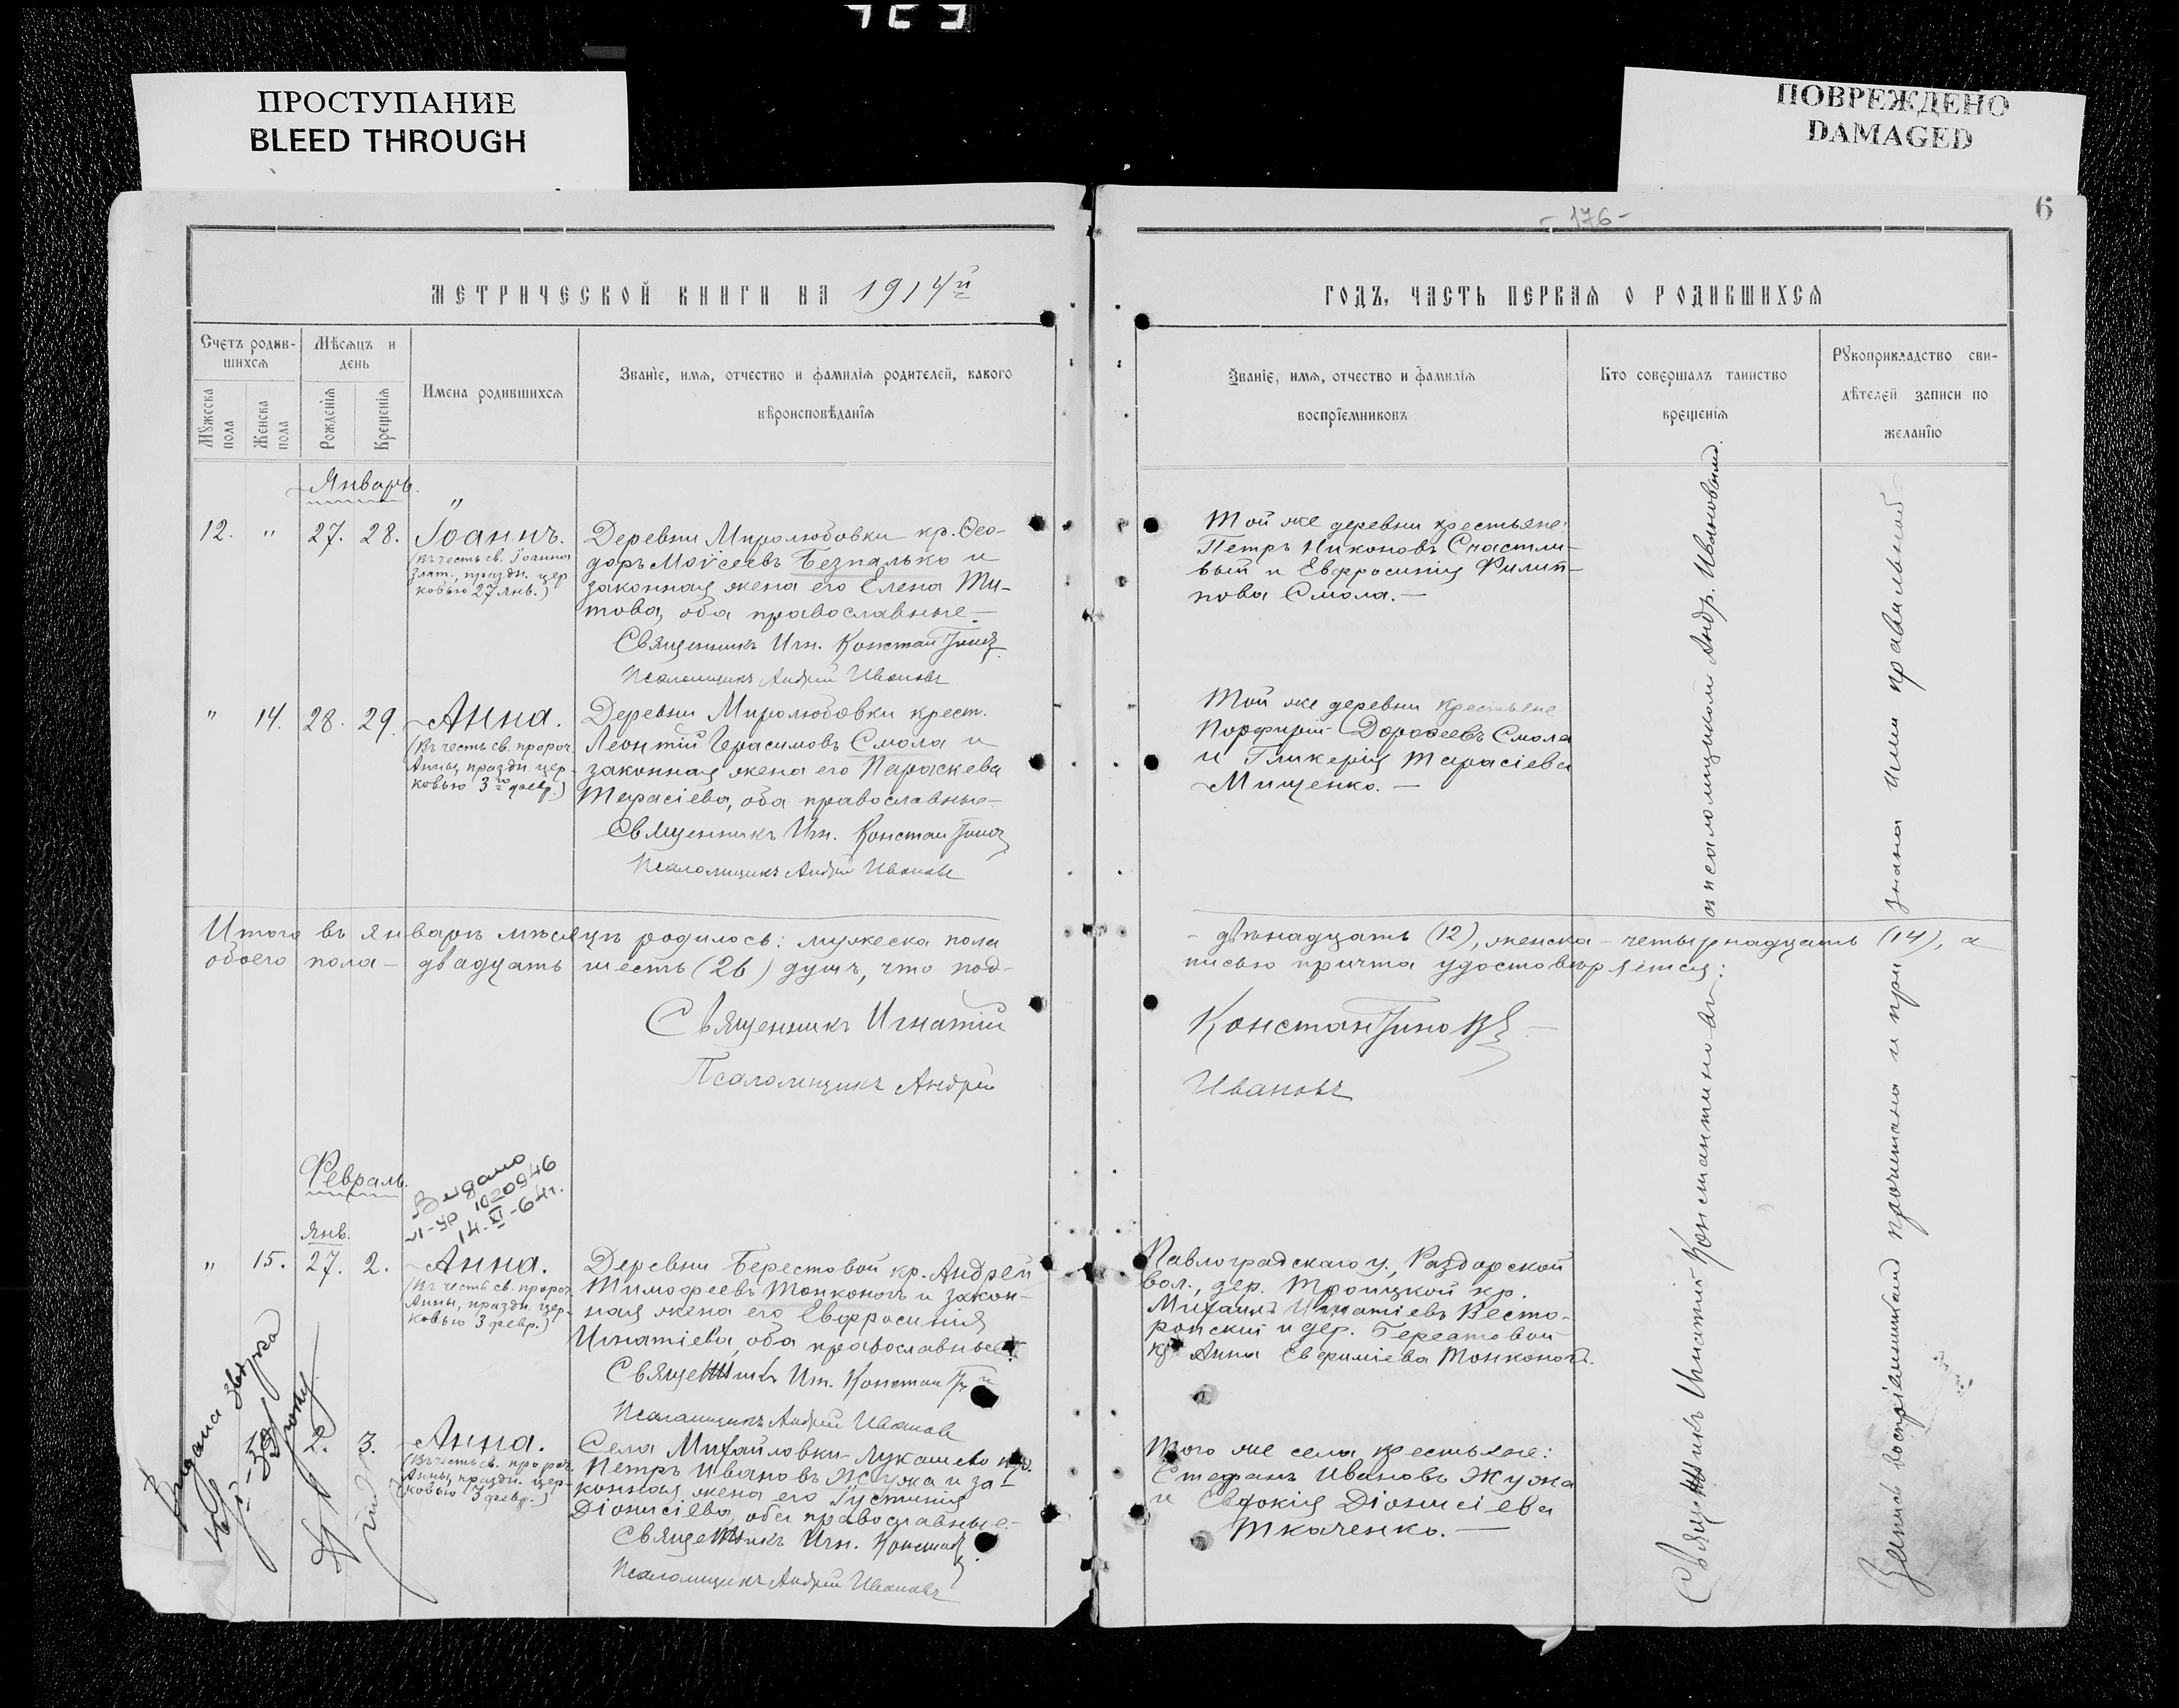 ПРОСТУПАНИЕ
BLEED THROUGH
ПОВРЕЖДЕНО
DAMAGED
- 176 -
6
МЕТРИЧЕСКОЙ КНИГИ НА 1914й
Счетъ родив-
шихся
Мужеска
пола
Женска
пола
Мѣсяцъ и
день
Рожденія
Крещенія
Имена родившихся
Званіе, имя, отчество и фамилія родителей, какого
вѣроисповѣданія
Январь.
12. " 27. 28. Іоаннъ.
(Въ честь св. Іоанна
Злат., праздн. цер
ковью 27 янв.)
Деревни Миролюбовки кр. Ѳео-
доръ Моѵсеевъ Безпалько и
законная жена его Елена Ти-
това, оба православные.
Священникъ Игн. Константинов
Псаломщикъ Андрей Ивановъ
" 14. 28. 29. Анна.
(Въ честь св. пророч.
Анны, праздн. цер-
ковью 3го февр.)
Деревни Миролюбовки крест.
Леонтій Герасимовъ Смола и
законная жена его Параскева
Тарасіева, оба православные
Священникъ Игн. Константинов
Псаломщикъ Андрей Ивановъ
Итого въ январѣ мѣсяцѣ родилось: мужеска пола
обоего пола – двадцать шесть (26) душъ, что под-
Священникъ Игнатій
Псаломщикъ Андрей
Февраль.
Видано
10209
14-XI-64г.
Янв.
" 15. 27. 2. Анна.
(Въ честь св. пророч.
Анны, праздн. цер-
ковью 3 февр.)
Деревни Берестовой кр. Андрей
Тимоѳеевъ Тонконогъ и закон-
ная жена его Евфросинія
Игнатіева, оба православные
Священникъ Игн.
Псаломщикъ Андрей Ивановъ
2. 3. Анна.
(Въ честь св. пророч.
Анны, праздн. цер-
ковью 3 февр.)
Села Михайловки-Лукашево кр.
Петръ Ивановъ Жужа и за-
конная жена его Іустинія
Діонисіева, оба православные.
Священникъ Игн.
Псаломщикъ Андрей Ивановъ
ГОДЪ, ЧАСТЬ ПЕРВАЯ О РОДИВШИХСЯ
Званіе, имя, отчество и фамилія
воспріемниковъ
Кто совершалъ таинство
крещенія
Рукоприкладство сви-
дѣтелей записи по
желанію
Той же деревни крестьяне:
Петръ Никоновъ Счастли-
вый и Евфросинія Филип-
пова Смола.
Той же деревни крестьяне
Порфирій Дороѳеевъ Смола
и Гликерія Тарасіева
Мищенко.
- двѣнадцать (12), женска – четырнадцать (14), а
писью причта удостовѣряется:
Константиновъ
Ивановъ
Павлоградскаго у., Раздорской
вол., дер. Троицкой кр.
Михаилъ Игнатіевъ
и дер. Берестовой
кр. Анна Евфиміева Тонконогъ.
Того же села крестьяне:
Стефанъ Ивановъ Жужа
и Евдокія Діонисіева
Ткаченко.
Священникъ Игнатій Константиновъ съ псаломщикомъ Андр. Ивановымъ.
Запись воспріемниками прочитана и признана ими правильной